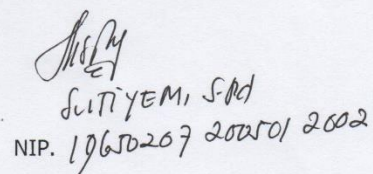 SUTIYEMI, S.Pd
NIP. 19650207 200501 2002